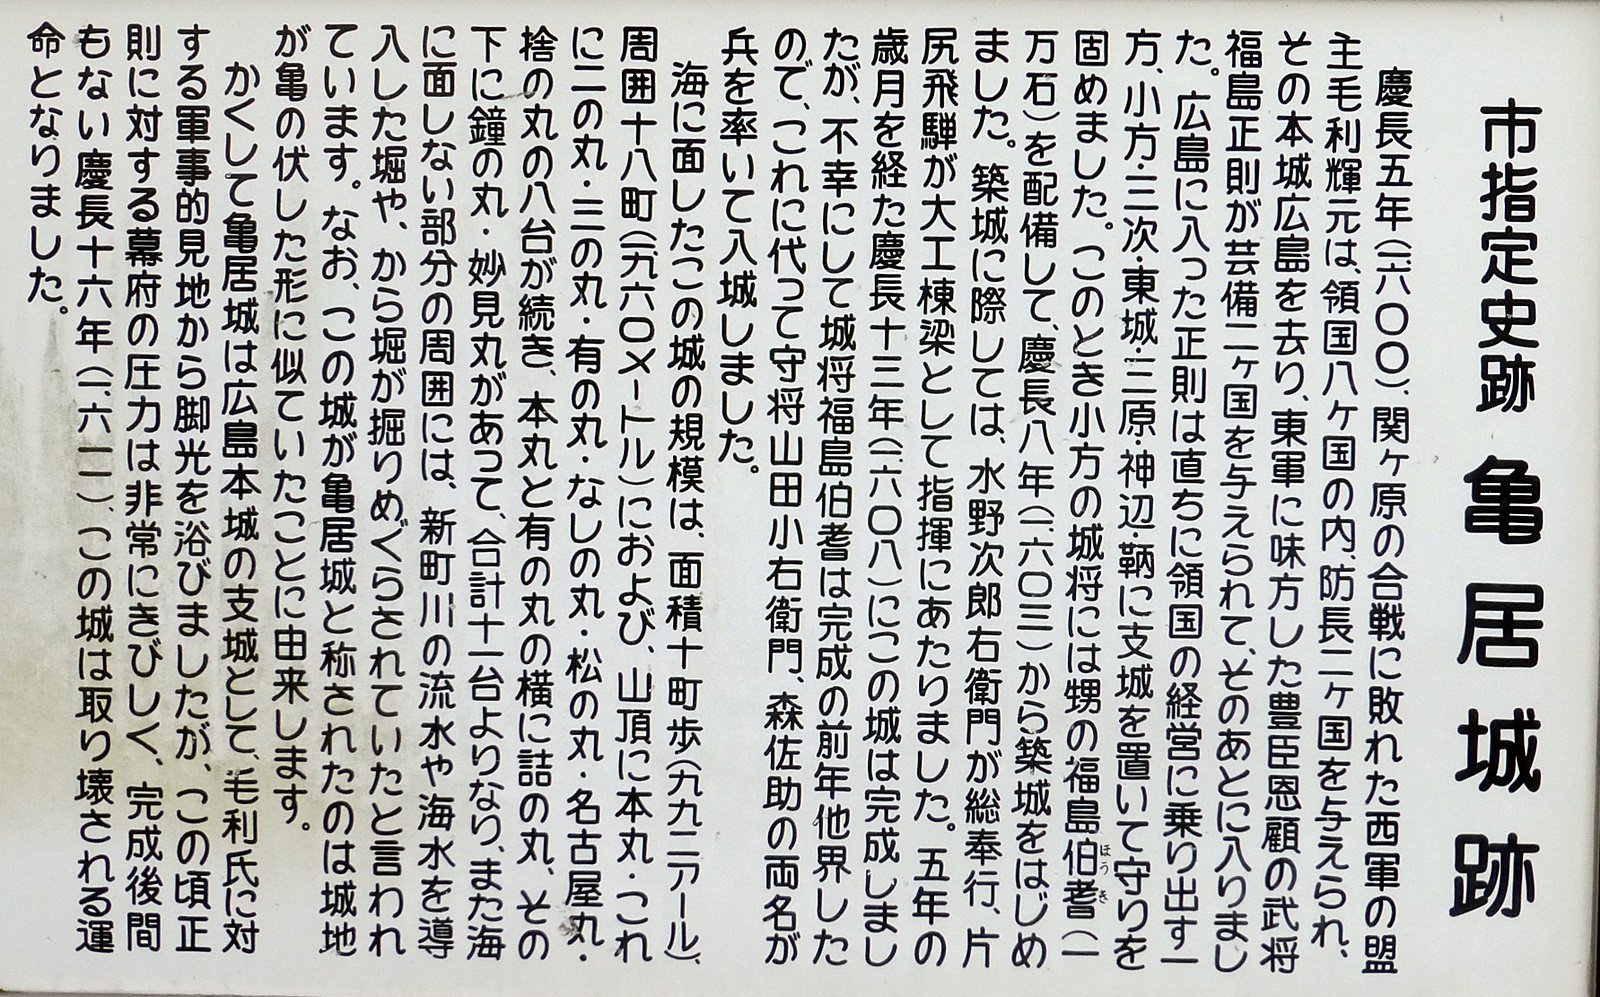 市指定史跡 亀居城跡
慶長五年(一六〇〇)、関ヶ原の合戦に敗れた西軍の盟
主毛利輝元は、領国八ヶ国の内、防長二ヶ国を与えられ、
その本城広島を去り、東軍に味方した豊臣恩顧の武将
福島正則が芸備二ヶ国を与えられて、そのあとに入りまし
た。広島に入った正則は直ちに領国の経営に乗り出す一
方、小方・三次・東城・三原・神辺・鞆に支城を置いて守りを
固めました。このとき小方の城将には甥の福島伯耆(一
ほうき
万石)を配備して、慶長八年(一六〇三)から築城をはじめ
ました。築城に際しては、水野次郎右衛門が総奉行、片
尻飛騨が大工棟梁として指揮にあたりました。五年の
歳月を経た慶長十三年(一六〇八)にこの城は完成しまし
たが、不幸にして城将福島伯耆は完成の前年他界した
ので、これに代って守将山田小右衛門、森佐助の両名が
兵を率いて入城しました。
海に面したこの城の規模は、面積十町歩(九九二アール)、
周囲十八町(一九六〇メートル)におよび、山頂に本丸・これ
に二の丸・三の丸・有の丸・なしの丸・松の丸・名古屋丸・
捨の丸の八台が続き、本丸と有の丸の横に詰の丸、その
下に鐘の丸・妙見丸があって、合計十一台よりなり、また海
に面しない部分の周囲には、新町川の流水や海水を導
入した堀や、から堀が掘りめぐらされていたと言われ
ています。なお、この城が亀居城と称されたのは城地
が亀の伏した形に似ていたことに由来します。
かくして亀居城は広島本城の支城として、毛利氏に対
する軍事的見地から脚光を浴びましたが、この頃正
則に対する幕府の圧力は非常にきびしく、完成後間
もない慶長十六年(一六一一)、この城は取り壊される運
命となりました。